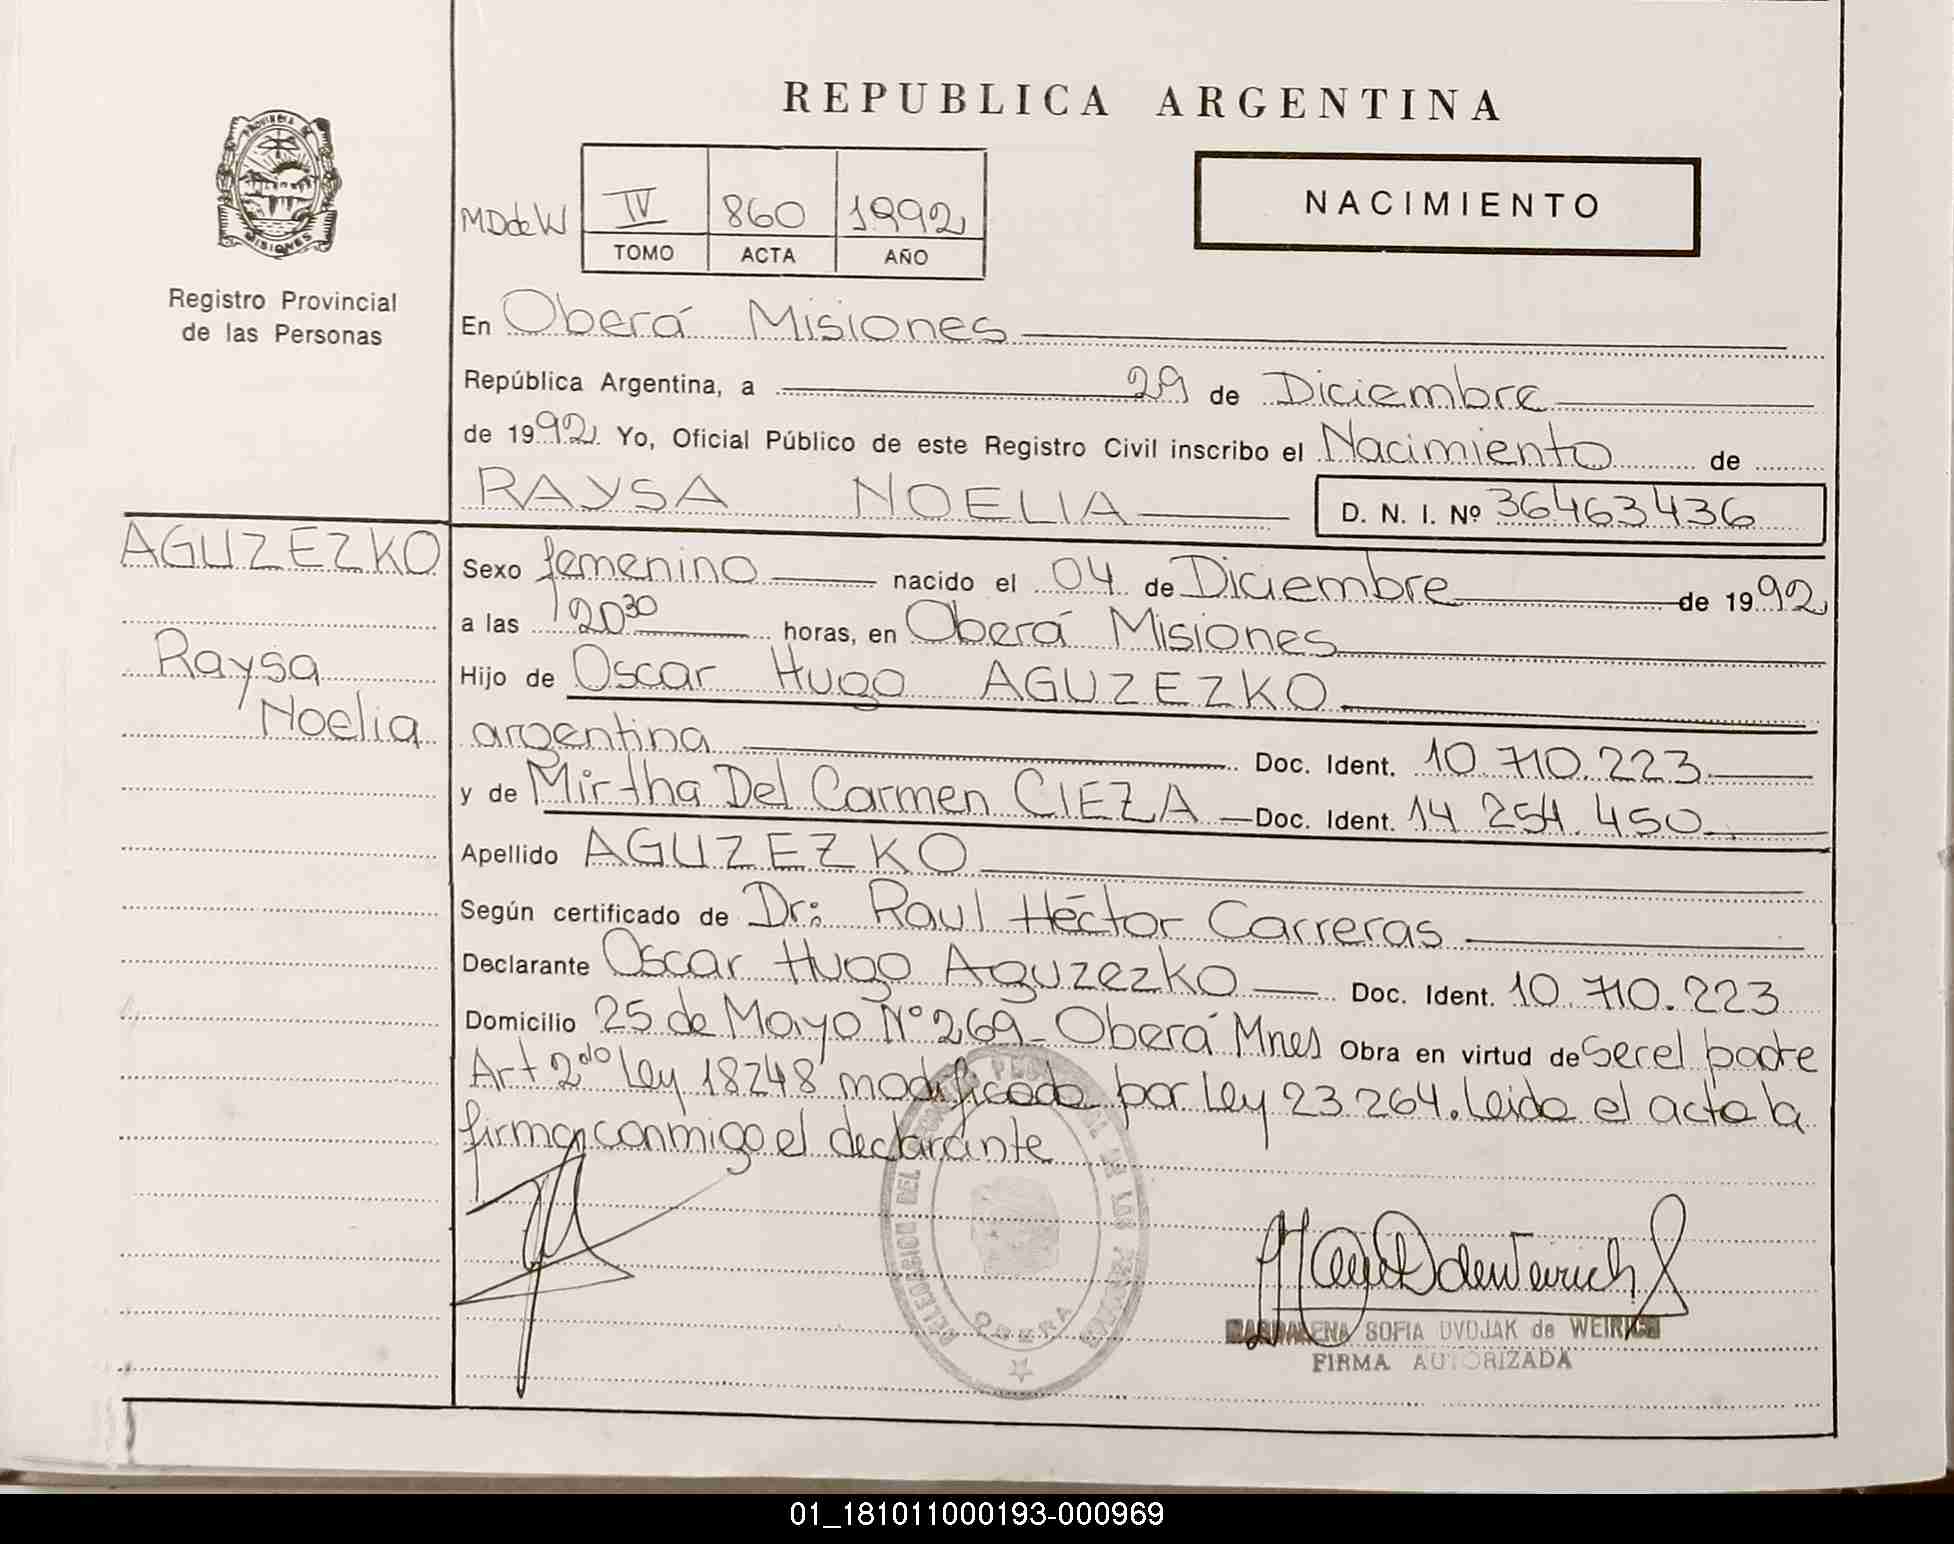 REPUBLICA ARGENTINA
PROVINCIA DE
MISIONES
Registro Provincial
de las Personas
NACIMIENTO
MDdeW IV 860 1992
TOMO ACTA AÑO
En Oberá Misiones
República Argentina, a 29 de Diciembre
de 1992. Yo, Oficial Público de este Registro Civil inscribo el Nacimiento de
RAYSA NOELIA D. N. I. Nº 36463436
AGUZEZKO
Raysa
Noelia
Sexo femenino nacido el 04 de Diciembre de 1992
a las 20 30 horas, en Oberá Misiones
Hijo de Oscar Hugo AGUZEZKO
argentina Doc. Ident. 10.710.223
y de Mirtha Del Carmen CIEZA Doc. Ident. 14 254.450
Apellido AGUZEZKO
Según certificado de Dr: Raul Héctor Carreras
Declarante Oscar Hugo Aguzezko Doc. Ident. 10.710.223
Domicilio 25 de Mayo N° 269 Oberá Mnes Obra en virtud de Ser el padre
Art 2do Ley 18248 modificada por Ley 23.264. Leida el acta la
firman conmigo el declarante
DELEGACION DEL
DE LAS
OBERA
MAGDALENA SOFIA DVOJAK de WEIRICH
FIRMA AUTORIZADA
01_181011000193-000969